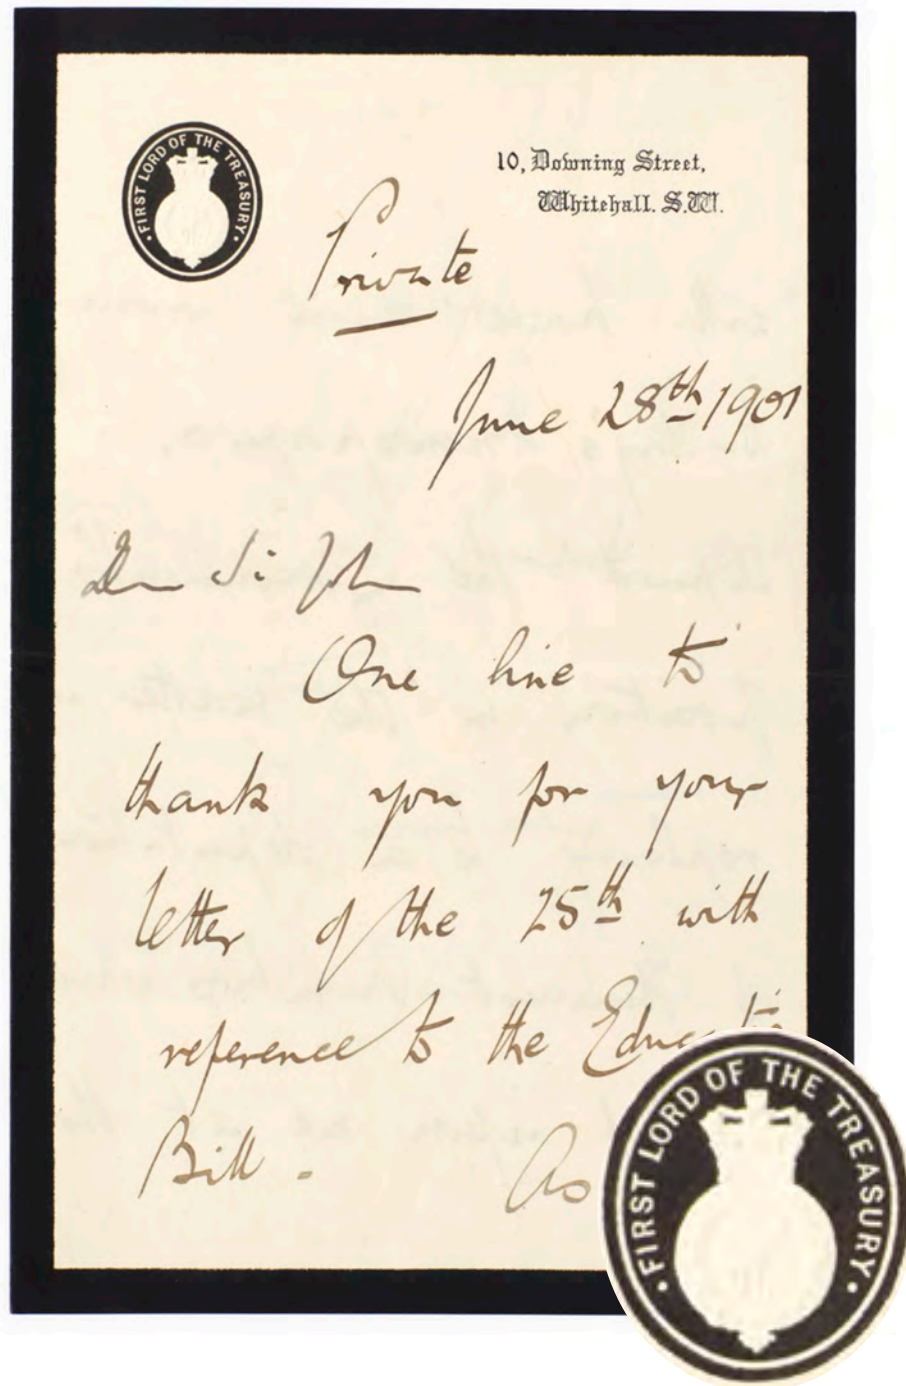 · FIRST LORD OF THE TREASURY ·
10, Downing Street,
Whitehall. S.W.
Private
June 28th 1901
Dr Sir John
One line to
thank you for your
letter of the 25th with
reference to the
Bill. As
· FIRST LORD OF THE TREASURY ·